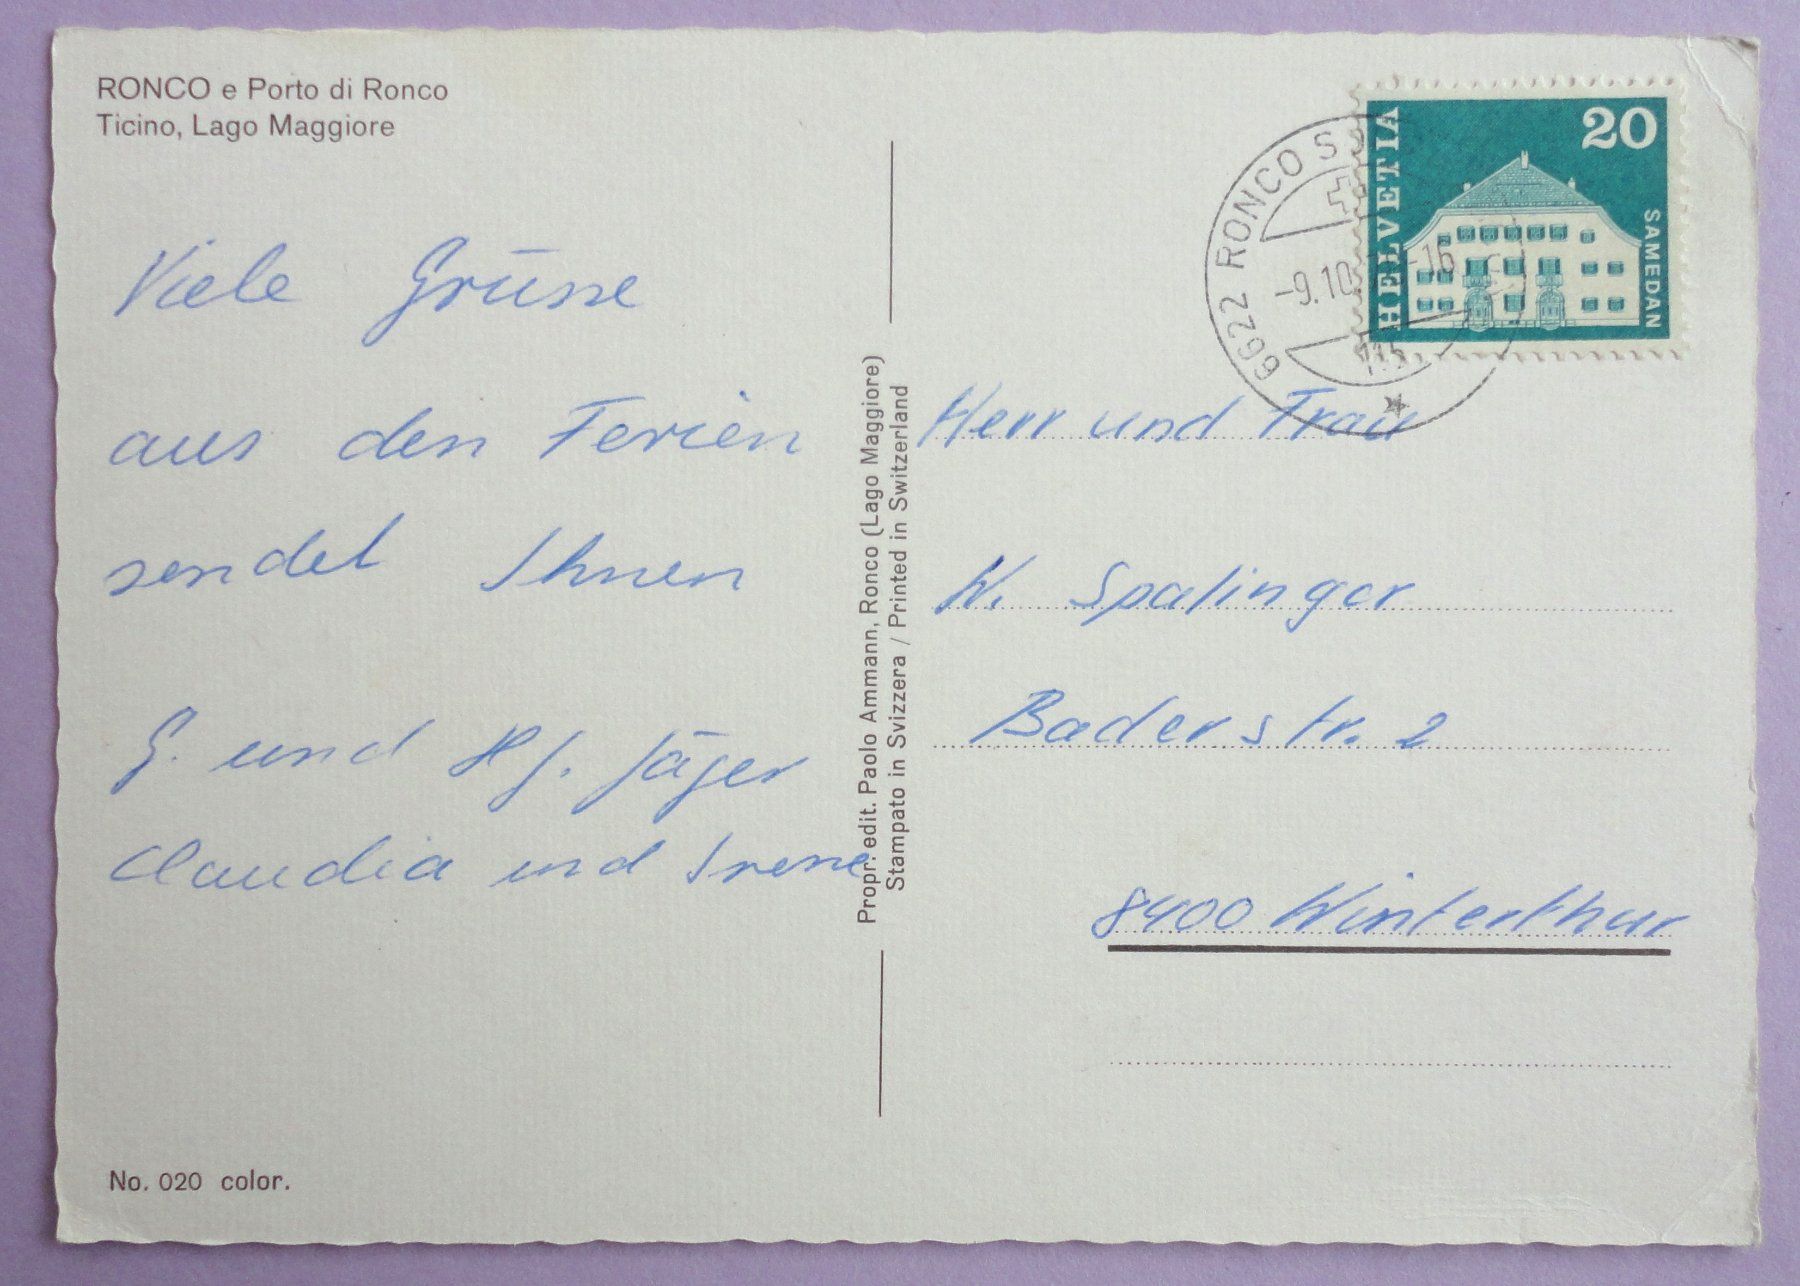 RONCO e Porto di Ronco
Ticino, Lago Maggiore
Viele Grüsse
aus den Ferien
sendet Ihnen
G. und HJ. Jäger
Claudia und Irene
No. 020 color.
Propr. edit. Paolo Ammann, Ronco (Lago Maggiore)
Stampato in Svizzera / Printed in Switzerland
HELVETIA
20
SAMEDAN
6622 RONCO S
-9.10. -16
Herr und Frau
W. Spalinger
Baderstr. 2
8400 Winterthur